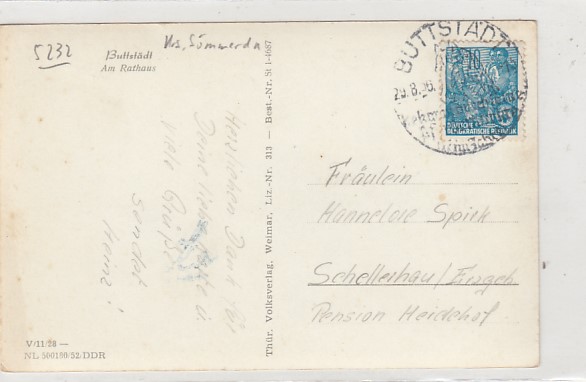 5232
Krs. Sömmerda
Buttstädt
Am Rathaus
BUTTSTÄDT
29.8.56
10
DEUTSCHE
DEMOKRATISCHE REPUBLIK
Herzlichen Dank für
Deine liebe Karte u
viele Grüße
sendet
Heinz!
Thür. Volksverlag, Weimar, Liz.-Nr. 313 — Best.-Nr. St 1-4687
Fräulein
Hannelore Spiek
Schellerhau/Erzgeb
Pension Heidehof
V/11/28 —
NL 500100/52/DDR